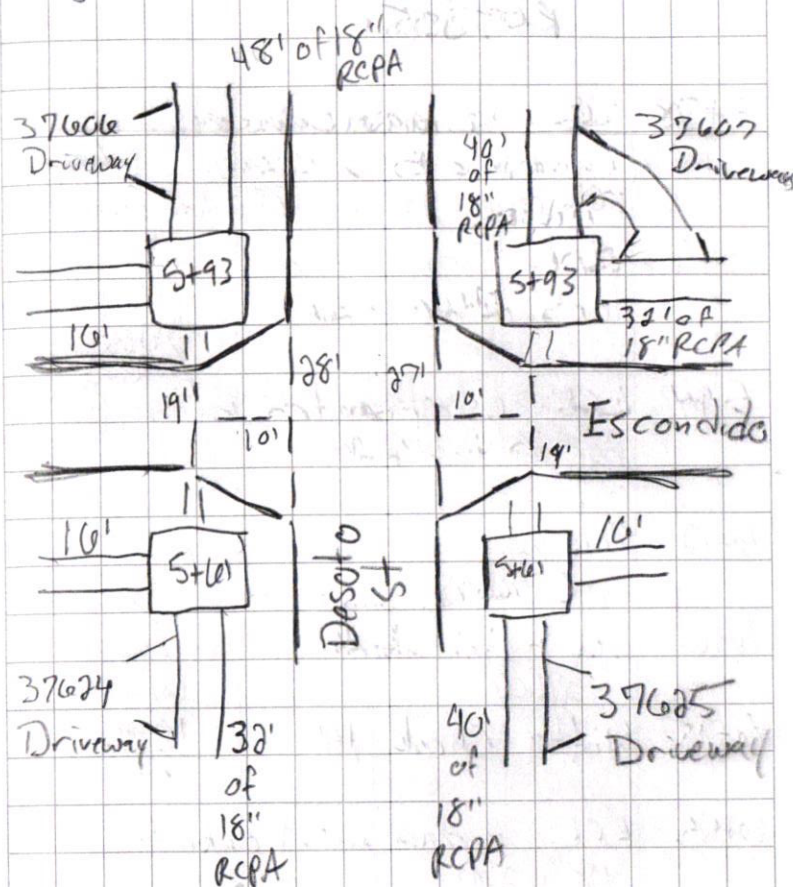 48' of 18"
RCPA
37606
Driveway
40'
of
18"
RCPA
37607
Driveways
S+93
S+93
16'
32' of
18" RCPA
28'
27'
19"
10'
10'
Escondido
19'
16'
16'
S+61
S+61
Desoto
St
37624
Driveway
32'
of
18"
RCPA
40'
of
18"
RCPA
37625
Driveway